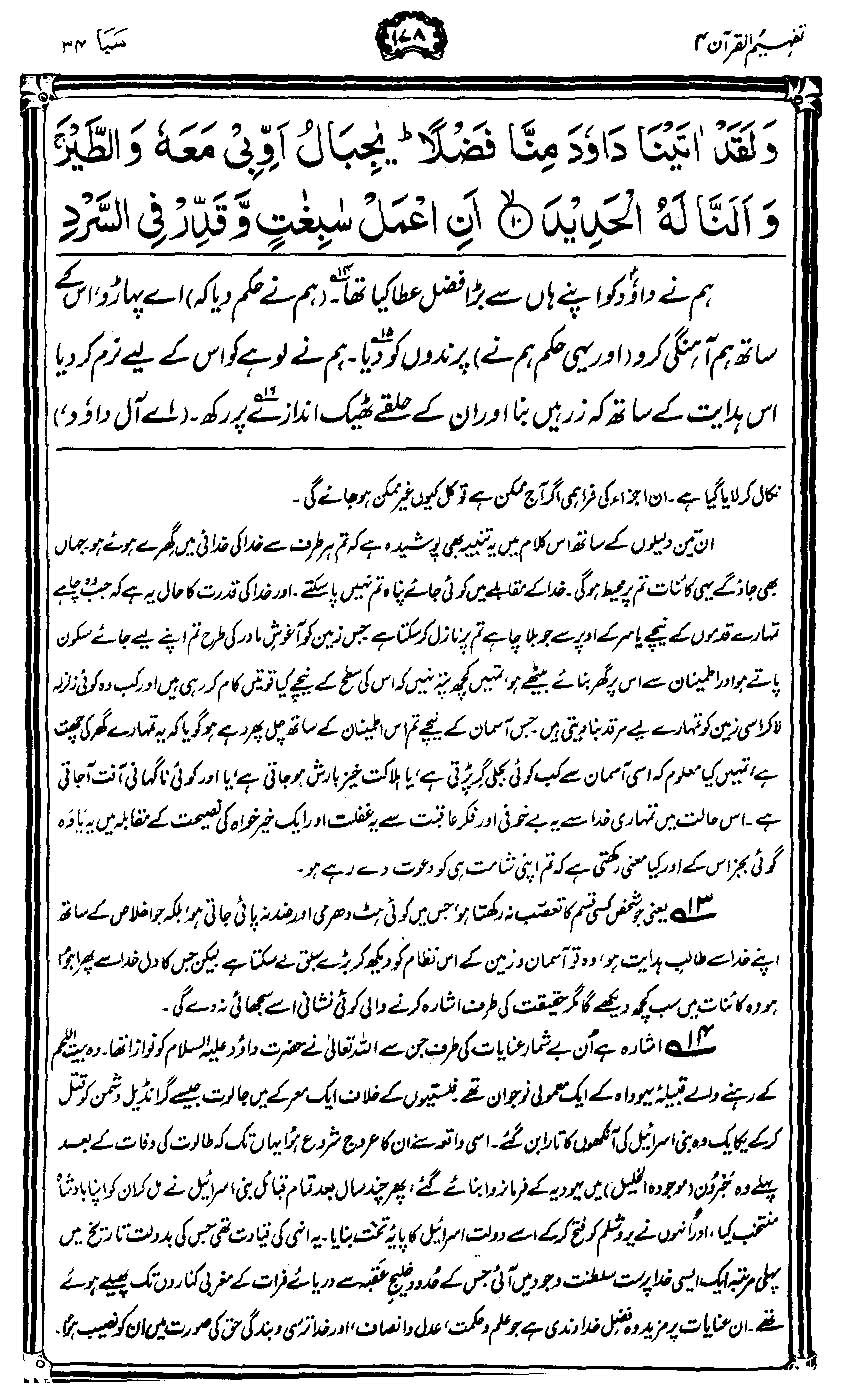 تفہیم القرآن ۴
۱۷۸
سَبَا ۳۴
وَلَقَدْ اٰتَيْنَا دَاوٗدَ مِنَّا فَضْلًا ؕ يٰجِبَالُ اَوِّبِيْ مَعَهٗ وَالطَّيْرَ ۚ
وَاَلَنَّا لَهُ الْحَدِيْدَ ۙ﴿۱۰﴾ اَنِ اعْمَلْ سٰبِغٰتٍ وَّقَدِّرْ فِي السَّرْدِ
ہم نے داؤدؑ کو اپنے ہاں سے بڑا فضل عطا کیا تھا۱۴۔ (ہم نے حکم دیا کہ) اے پہاڑو، اس کے
ساتھ ہم آہنگی کرو (اور یہی حکم ہم نے) پرندوں کو دیا۱۵۔ ہم نے لوہے کو اس کے لیے نرم کر دیا
اس ہدایت کے ساتھ کہ زرہیں بنا اور ان کے حلقے ٹھیک اندازے پر رکھ۱۶۔ (اے آلِ داؤد،)
نکال کر لایا گیا ہے۔ ان اجزاء کی فراہمی اگر آج ممکن ہے تو کل کیوں غیر ممکن ہو جائے گی۔
ان تین دلیلوں کے ساتھ اس کلام میں یہ تنبیہ بھی پوشیدہ ہے کہ تم ہر طرف سے خدا کی خدائی میں گھرے ہوئے ہو جہاں
بھی جاؤ گے یہی کائنات تم پر محیط ہوگی۔ خدا کے مقابلے میں کوئی جائے پناہ تم نہیں پا سکتے۔ اور خدا کی قدرت کا حال یہ ہے کہ جب وہ چاہے
تمہارے قدموں کے نیچے یا سر کے اوپر سے جو بلا چاہے تم پر نازل کر سکتا ہے۔ جس زمین کو آغوشِ مادر کی طرح تم اپنے لیے جائے سکون
پاتے ہو اور اطمینان سے اس پر گھر بنائے بیٹھے ہو، تمہیں کچھ پتہ نہیں کہ اس کی سطح کے نیچے کیا قوتیں کام کر رہی ہیں اور کب وہ کوئی زلزلہ
لا کر اسی زمین کو تمہارے لیے مرقد بنا دیتی ہیں۔ جس آسمان کے نیچے تم اس اطمینان کے ساتھ چل پھر رہے ہو گویا کہ یہ تمہارے گھر کی چھت
ہے، تمہیں کیا معلوم کہ اسی آسمان سے کب کوئی بجلی گر پڑتی ہے، یا ہلاکت خیز بارش ہو جاتی ہے، یا اور کوئی ناگہانی آفت آ جاتی
ہے۔ اس حالت میں تمہاری خدا سے یہ بے خوفی اور فکرِ عاقبت سے یہ غفلت اور ایک خیر خواہ کی نصیحت کے مقابلہ میں یہ یاوہ
گوئی بجز اس کے اور کیا معنی رکھتی ہے کہ تم اپنی شامت ہی کو دعوت دے رہے ہو۔
۱۳ یعنی جو شخص کسی قسم کا تعصب نہ رکھتا ہو، جس میں کوئی ہٹ دھرمی اور ضد نہ پائی جاتی ہو، بلکہ جو اخلاص کے ساتھ
اپنے خدا سے طالبِ ہدایت ہو، وہ تو آسمان و زمین کے اس نظام کو دیکھ کر بڑے سبق لے سکتا ہے لیکن جس کا دل خدا سے پھرا ہوا
ہو وہ کائنات میں سب کچھ دیکھے گا مگر حقیقت کی طرف اشارہ کرنے والی کوئی نشانی اسے سجھائی نہ دے گی۔
۱۴ اشارہ ہے اُن بے شمار عنایات کی طرف جن سے اللہ تعالیٰ نے حضرت داؤد علیہ السلام کو نوازا تھا۔ وہ بیت اللحم
کے رہنے والے قبیلۂ یہوداہ کے ایک معمولی نوجوان تھے۔ فلستیوں کے خلاف ایک معرکے میں جالوت جیسے گرانڈیل دشمن کو قتل
کر کے یکایک وہ بنی اسرائیل کی آنکھوں کا تارا بن گئے۔ اسی واقعہ سے ان کا عروج شروع ہوا یہاں تک کہ طالوت کی وفات کے بعد
پہلے وہ حَبْرُون (موجودہ الخلیل) میں یہودیہ کے فرمانروا بنائے گئے، پھر چند سال بعد تمام قبائلِ بنی اسرائیل نے مل کر ان کو اپنا بادشاہ
منتخب کیا، اور انہوں نے یروشلم کو فتح کر کے اسے دولتِ اسرائیل کا پایۂ تخت بنایا۔ یہ انہی کی قیادت تھی جس کی بدولت تاریخ میں
پہلی مرتبہ ایک ایسی خدا پرست سلطنت وجود میں آئی جس کے حدود خلیجِ عقبہ سے دریائے فرات کے مغربی کناروں تک پھیلے ہوئے
تھے۔ ان عنایات پر مزید وہ فضلِ خداوندی ہے جو علم و حکمت، عدل و انصاف، اور خدا ترسی و بندگیِ حق کی صورت میں ان کو نصیب ہوا۔